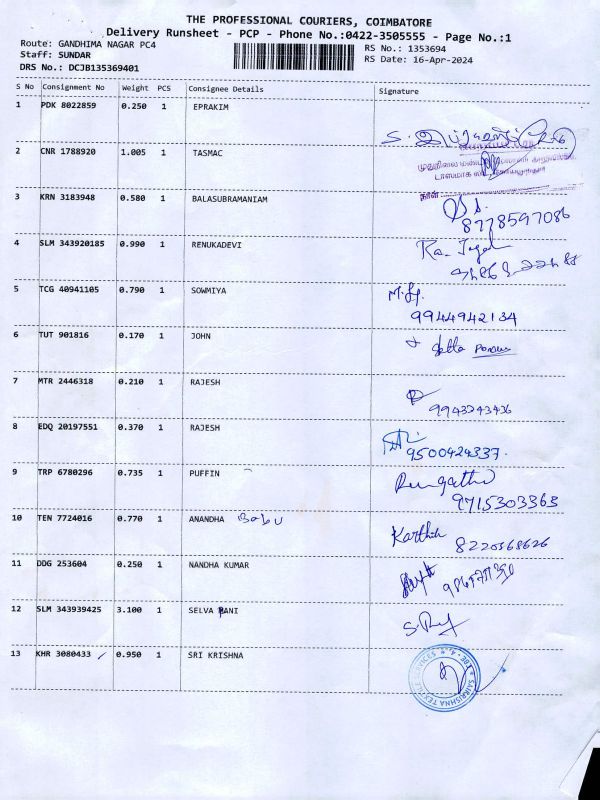 THE PROFESSIONAL COURIERS, COIMBATORE
Delivery Runsheet - PCP - Phone No.:0422-3505555 - Page No.:1
Route: GANDHIMA NAGAR PC4
Staff: SUNDAR
DRS No.: DCJB135369401
RS No.: 1353694
RS Date: 16-Apr-2024
S No Consignment No Weight PCS Consignee Details Signature
1 PDK 8022859 0.250 1 EPRAKIM
2 CNR 1788920 1.005 1 TASMAC
3 KRN 3183948 0.580 1 BALASUBRAMANIAM
8778597086
4 SLM 343920185 0.990 1 RENUKADEVI
5 TCG 40941105 0.790 1 SOWMIYA
9944942134
6 TUT 901816 0.170 1 JOHN
7 MTR 2446318 0.210 1 RAJESH
9943243436
8 EDQ 20197551 0.370 1 RAJESH
9500424337.
9 TRP 6780296 0.735 1 PUFFIN
9715303363
10 TEN 7724016 0.770 1 ANANDHA Babu
Karthik
8220568626
11 DDG 253604 0.250 1 NANDHA KUMAR
12 SLM 343939425 3.100 1 SELVA RANI
13 KHR 3080433 0.950 1 SRI KRISHNA